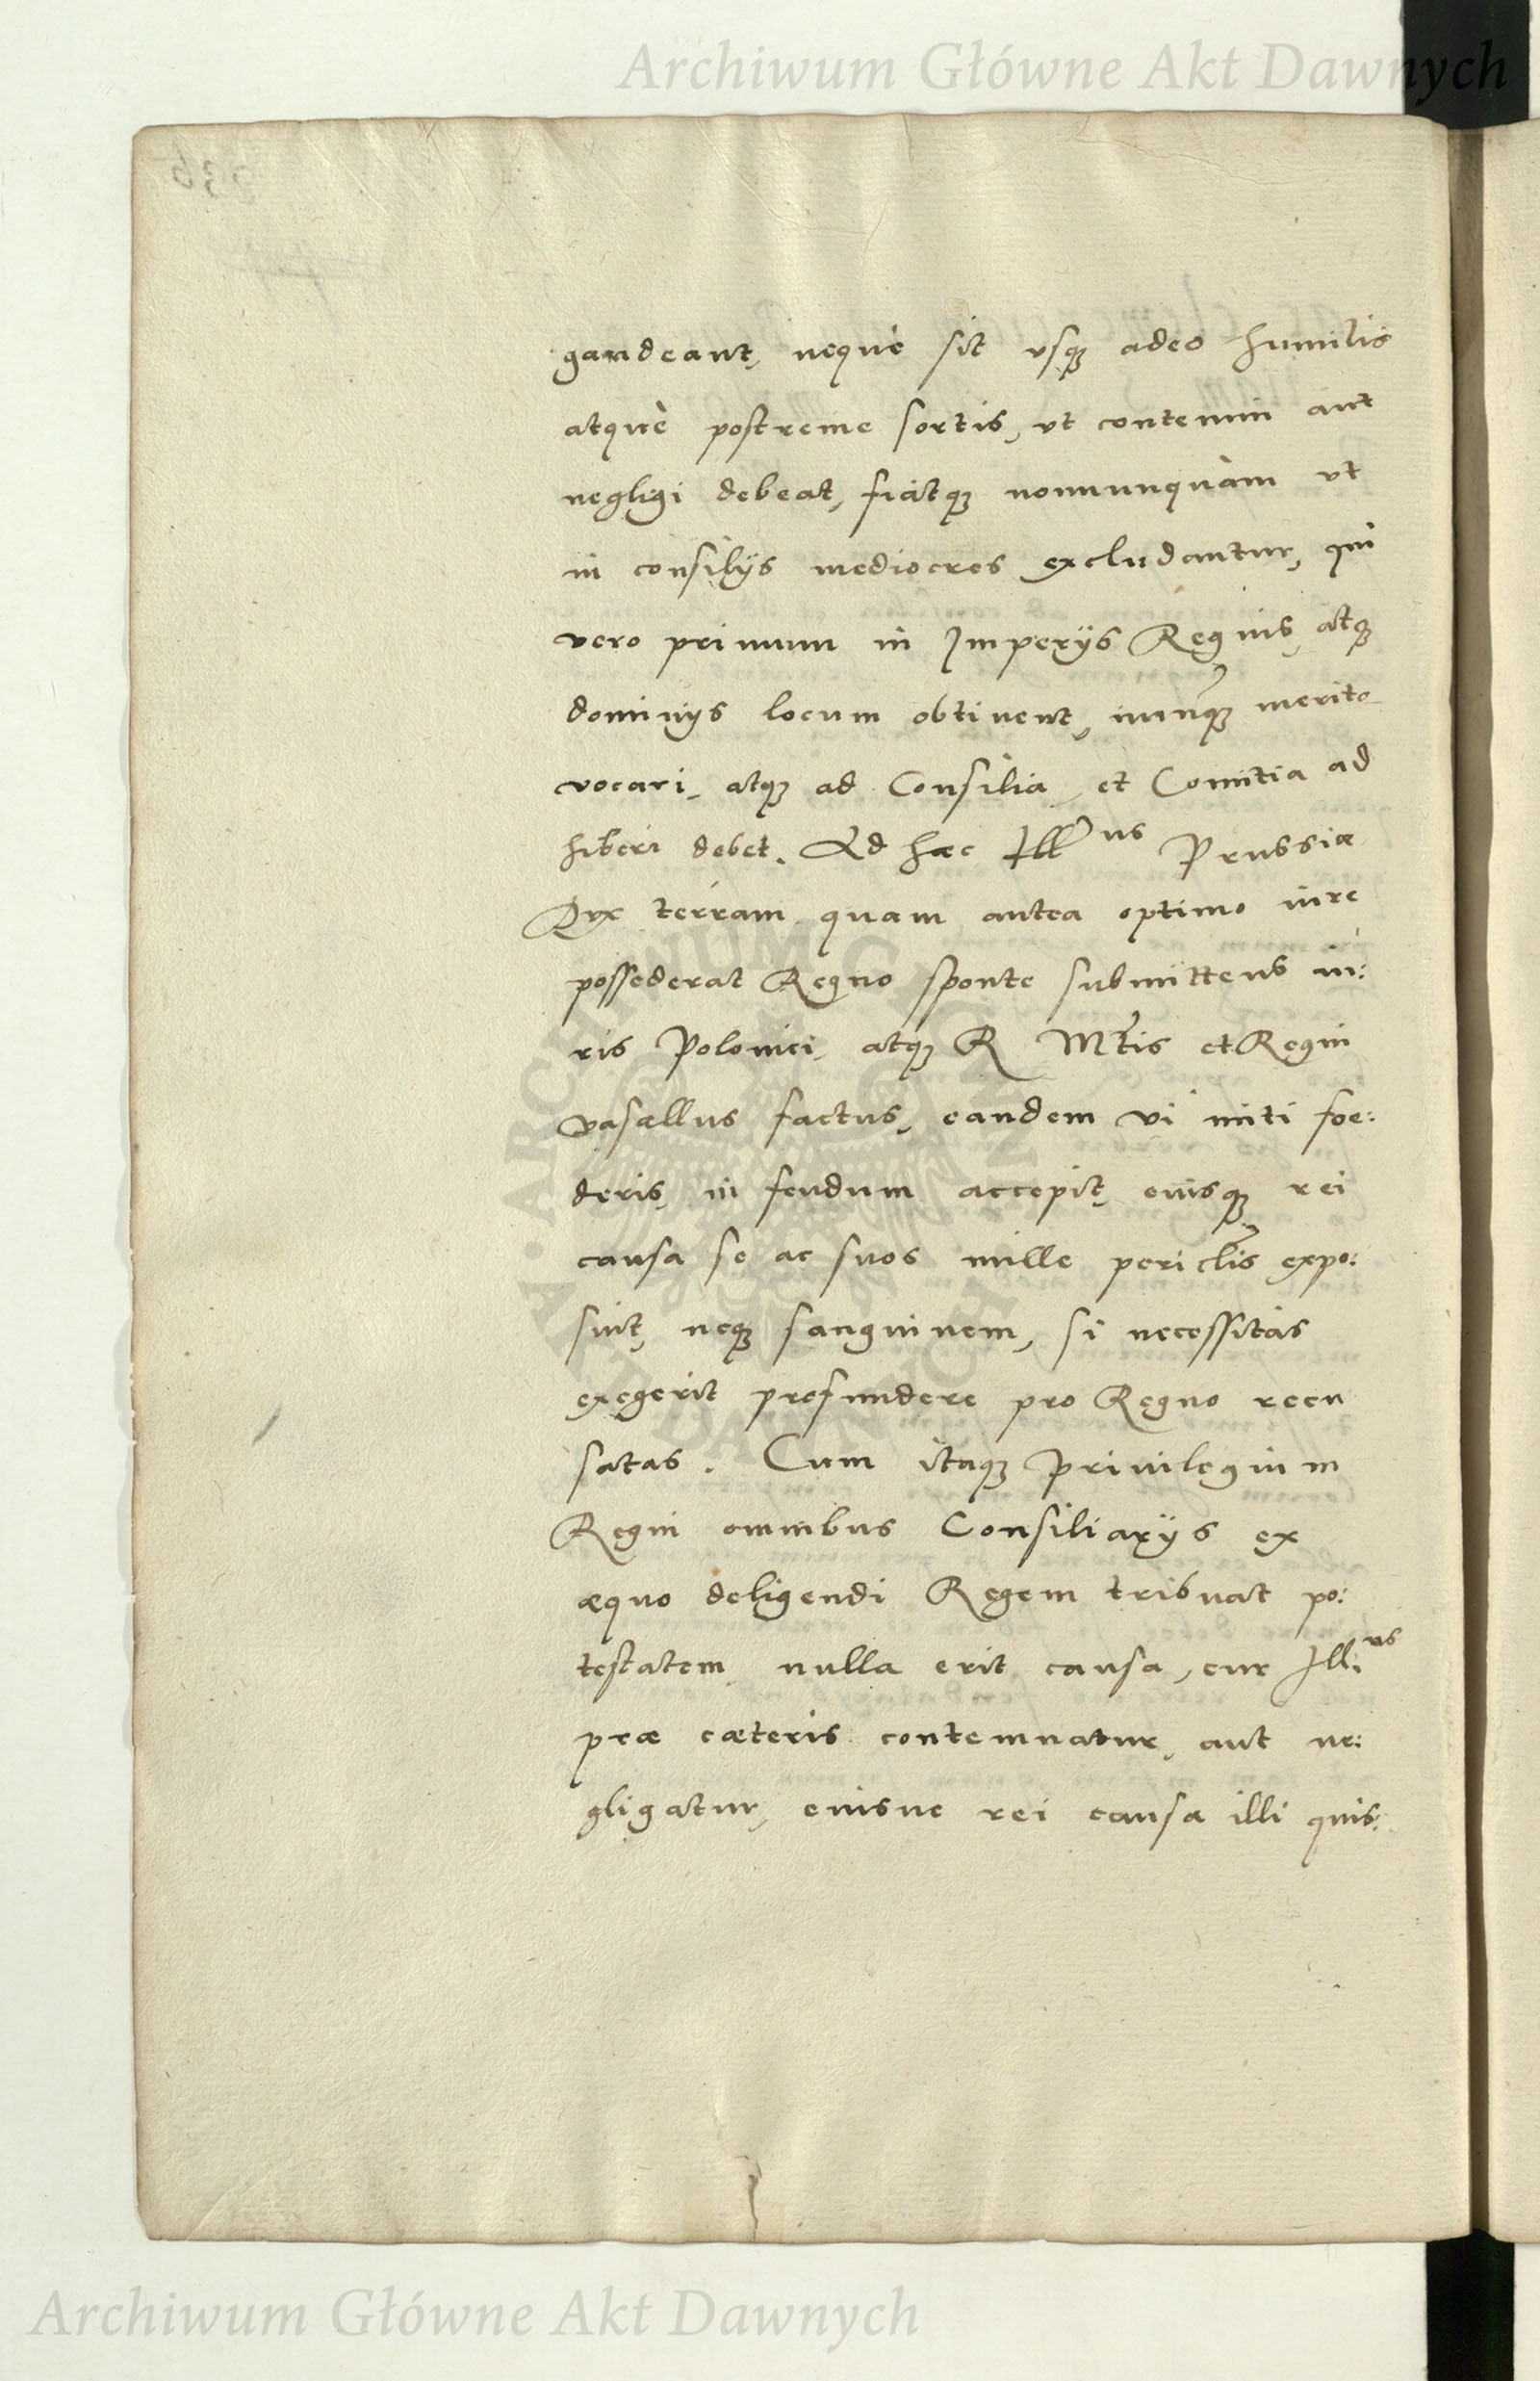 Archiwum Główne Akt Dawnych
336
gaudeant, nequè sit vsq3 adeo humilis
atquè postreme sortis, vt contemni aut
negligi debeat, fiatq3 nonnunquàm vt
in consilijs mediocres excludantur, qui
vero primum in Imperijs Regnis, atq3
dominijs locum obtinent, nunq3 merito
vocari, atq3 ad Consilia, et Comitia ad
hiberi debet. Ad haec Ill us Prussiæ
Dux terram quam antea optimo iure
possederat Regno sponte submittens iu:
ris Polonici, atq3 R Mtis et Regni
vasallus factus, eandem vi initi foe:
deris, in feudum accepit, eiusq3 rei
causa se ac suos mille periclis expo:
suit, neq3 sanguinem, si necessitas
exegerit profundere pro Regno recu
satas. Cum itaq3 Priuilegium
Regni omnibus Consiliarijs ex
æquo deligendi Regem tribuat po:
testatem, nulla erit causa, cur Ill. us
præ cæteris contemnatur, aut ne:
gligatur, eiusue rei causa illi quis:
Archiwum Główne Akt Dawnych